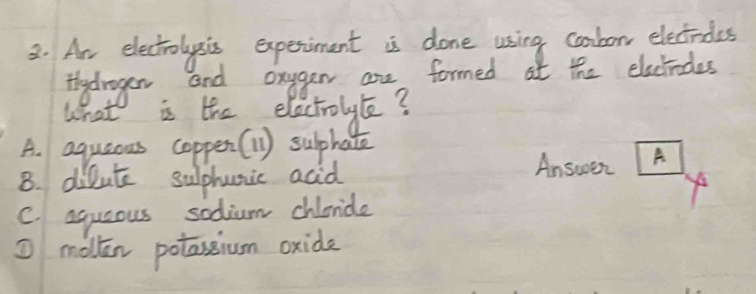 2. An electrolysis experiment is done using carbon electrodes
Hydrogen and oxygen are formed at the electrodes
What is the electrolyte?
A. aqueous copper(II) sulphate
B. dilute sulphuric acid
Answer A
C. aqueous sodium chloride
D molten potassium oxide